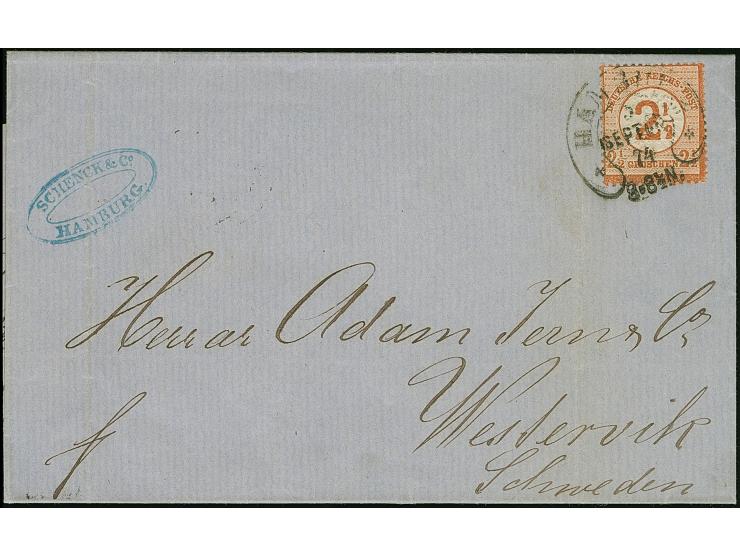 SCHENCK & Co.
HAMBURG.
DEUTSCHE REICHS-POST
2½
2½ GROSCHEN 2½
HAM
SEPTBR
74
8-8½N.
Herrar Adam Jern & Co
Westervik
Schweden